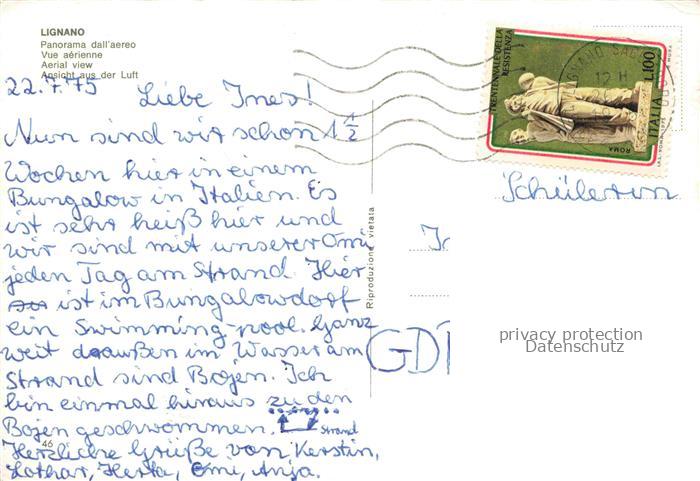 LIGNANO
Panorama dall'aereo
Vue aérienne
Aerial view
Ansicht aus der Luft
22.7.75 Liebe Ines!
Nun sind wir schon 1 1/2
Wochen hier in einem
Bungalow in Italien. Es
ist sehr heiß hier und
wir sind mit unserer Omi
jeden Tag am Strand. Hier
ist im Bungalowdorf
ein Swimming-pool. Ganz
weit draußen im Wasser am
Strand sind Bojen. Ich
bin einmal hinaus zu den
Bojen geschwommen. Strand
46
Herzliche Grüße von Kerstin,
Lothar, Herta, Omi, Anja.
Riproduzione vietata
TRENTENNALE DELLA
RESISTENZA
ROMA
ITALIA L.100
12 H
Schülerin
GD
privacy protection
Datenschutz